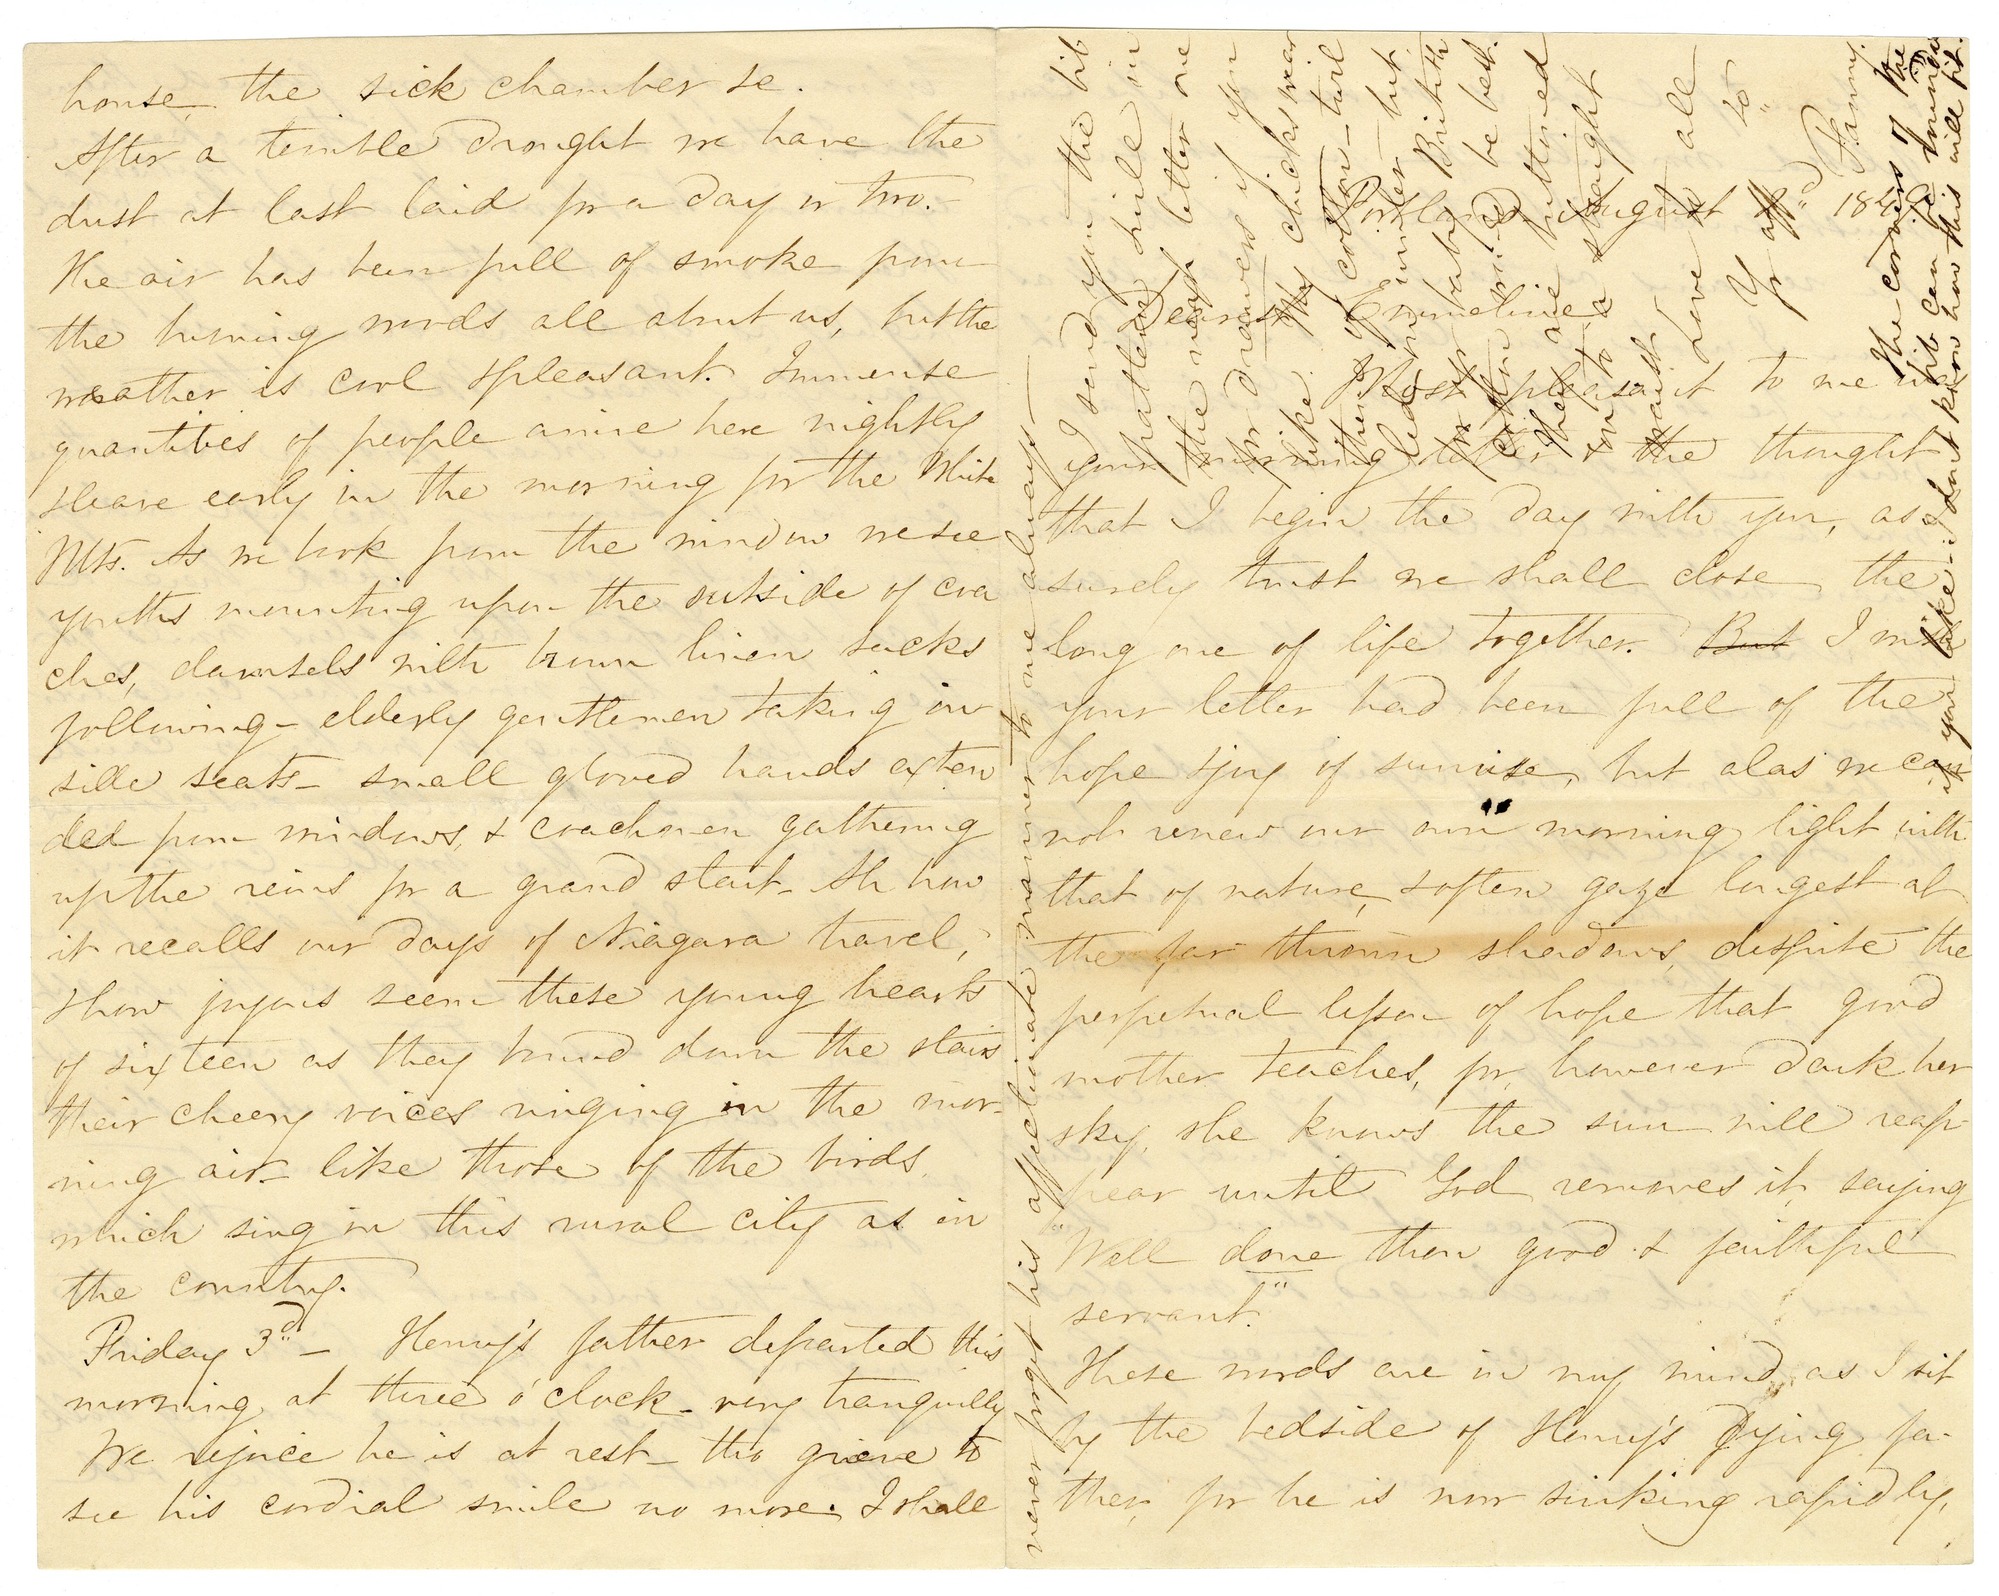 house, the sick chamber &c.
After a terrible drought we have the
dust at last laid for a day or two.
The air has been full of smoke from
the burning woods all about us, but the
weather is cool & pleasant. Immense
quantities of people arrive here nightly
& leave early in the morning for the White
Mts. As we look from the window we see
youths mounting upon the outside of coa
ches, damsels with brown linen sacks
following – elderly gentlemen taking in
side seats – small gloved hands exten
ded from windows, & coachmen gathering
up the reins for a grand start – Ah how
it recalls our days of Niagara travel,
& how joyous seem these young hearts
of sixteen as they bound down the stairs
their cheery voices ringing in the mor-
ning air – like those of the birds,
which sing in this rural city as in
the country.
Friday 3d – Henry's father departed this
morning at three o'clock – very tranquilly
We rejoice he is at rest – tho grieve to
see his cordial smile no more. I shall
never forget his affectionate manner to me always –
Portland August 2d 1849
Dearest Emmeline,
Most pleasant to me was
your morning letter & the thought
that I begin the day with you, as I
surely trust we shall close the
long one of life together. But I wish
your letter had been full of the
hope & joy of sunrise, but alas we can
not renew our own morning light with
that of nature, & often gaze longest at
the far thrown shadows, despite the
perpetual lesson of hope that good
mother teaches, for, however dark her
sky, she knows the sun will reap-
pear until God removes it, saying
"Well done thou good & faithful
servant."
These words are in my mind as I sit
by the bedside of Henry's dying fa-
ther, for he is now sinking rapidly,
I send you the bib
pattern & will in
the next letter one
for drawers if you
like. My chicks wear
them of cotton – twil
led in winter but
for a baby British
cotton would be best.
They are buttoned
on to a straight
waist.
Love to all
Yr aff
Fanny.
The corners of the
bib can be rounded
if you like – I don't know how this will fit.